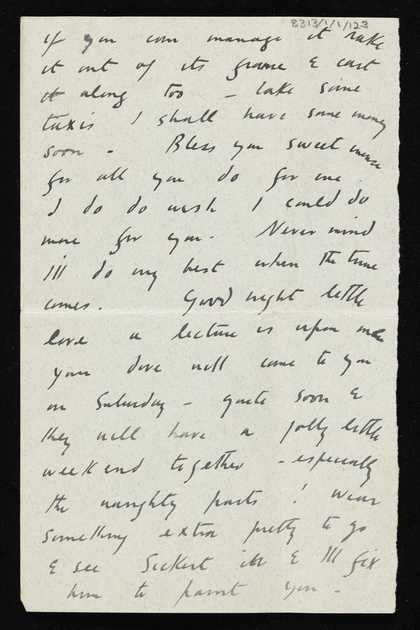 8313/1/1/123
if you can manage it take
it out of its frame & cart
it along too – take some
taxis I shall have some money
soon – Bless you sweet mouse
for all you do for me.
I do do wish I could do
more for you. Never mind
I'll do my best when the time
comes. Good night little
love a lecture is upon me
your dove will come to you
on Saturday – quite soon &
they will have a jolly little
weekend together – especially
the naughty parts! Wear
something extra pretty to go
& see Sickert in & I'll fix
him to paint you –